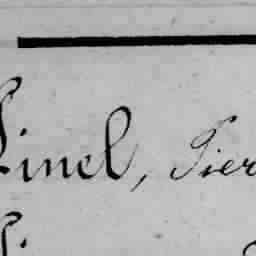 Pinel, Pier